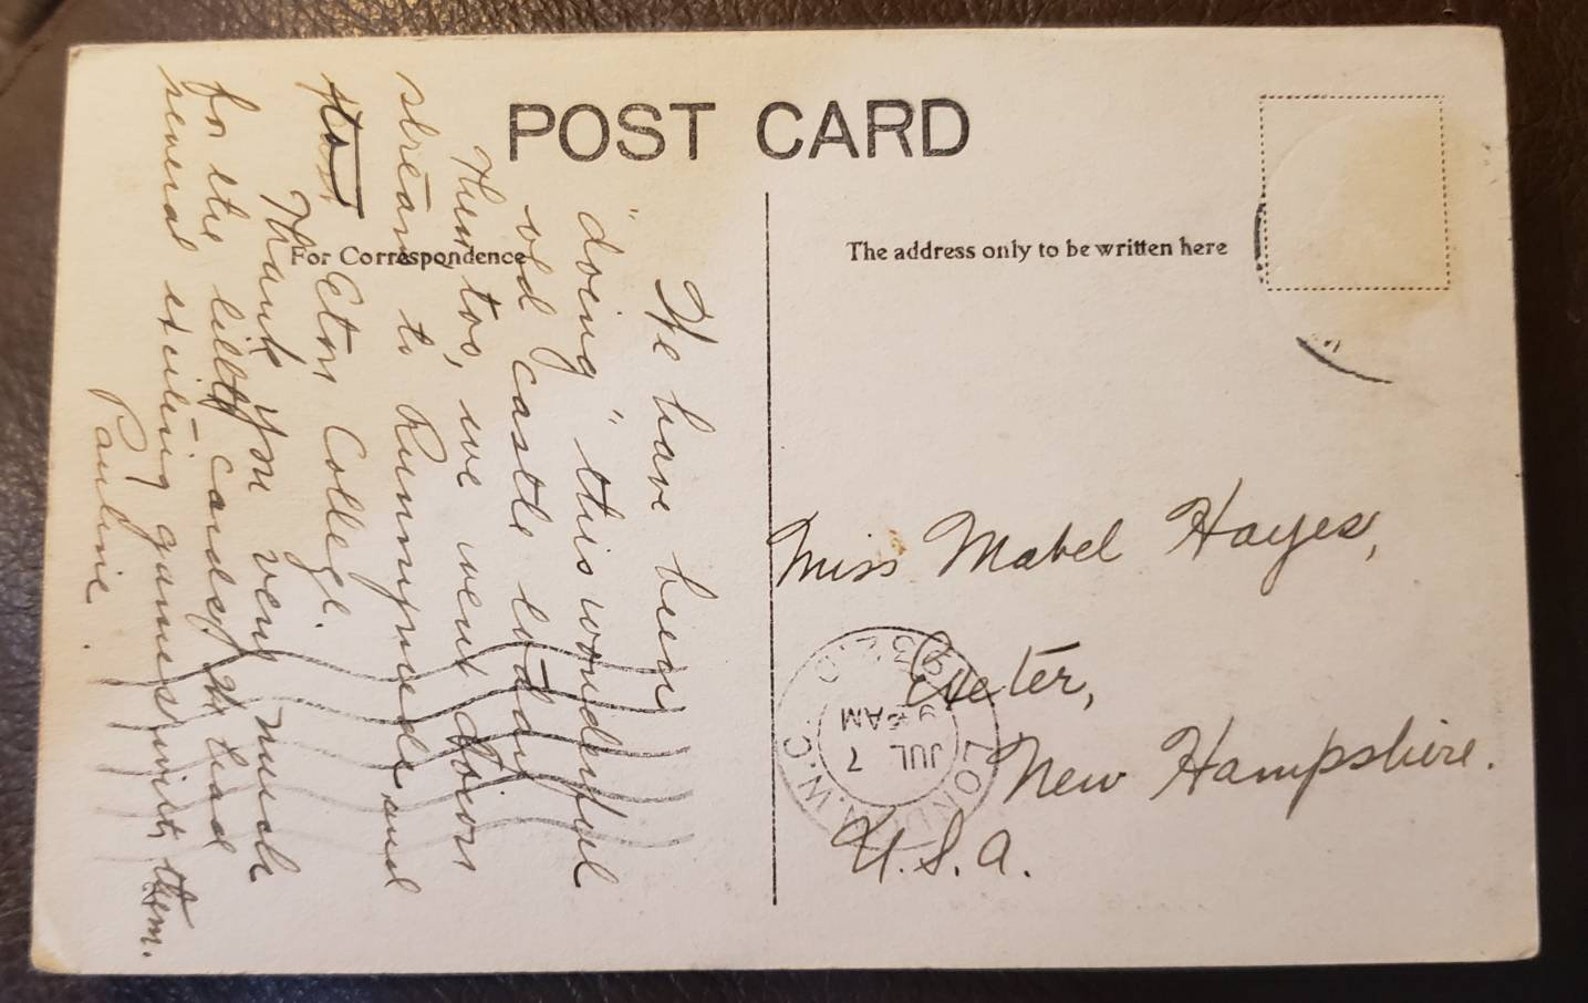 POST CARD
For Correspondence
The address only to be written here
We have been
"doing" this wonderful
old castle today
Then too, we went down
stream to Runnymede and
to Eton College.
Thank you very much
for the little candy. We had
several exciting games with them.
Pauline.
Miss Mabel Hayes,
Exeter,
New Hampshire.
U.S.A.
LONDON.W.C.
JUL 7
AM